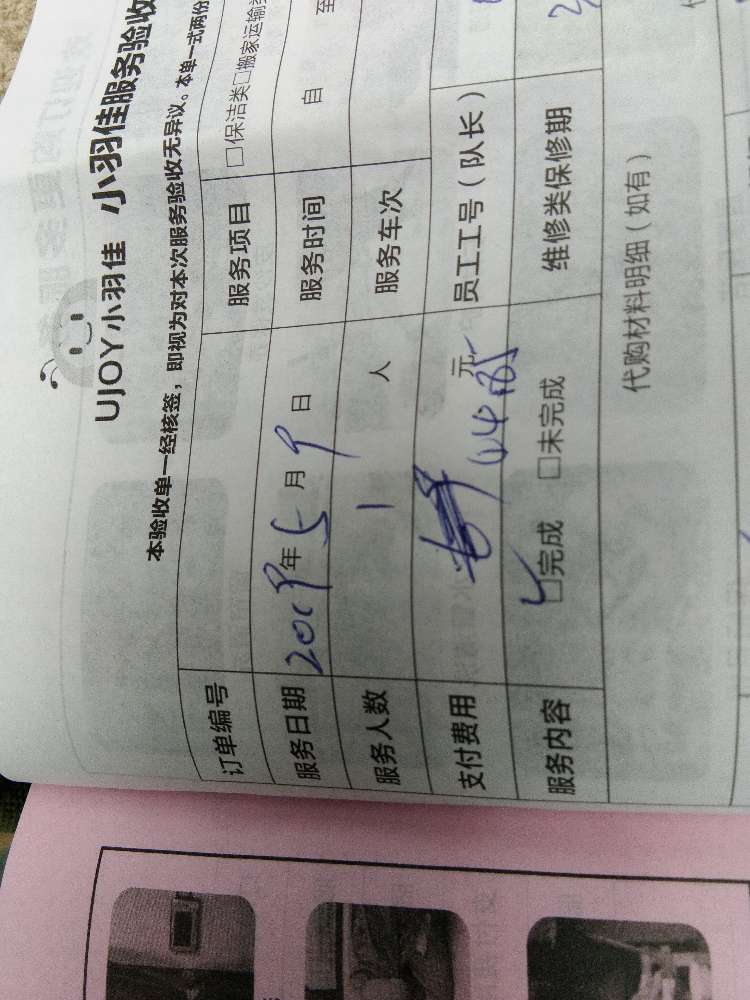 UJOY小羽佳 小羽佳服务验收
本验收单一经核签，即视为对本次服务验收无异议。本单一式两份
订单编号 服务项目 □保洁类□搬家运输类
服务日期 2019年5月9日 服务时间 自 至
服务人数 1 人 服务车次
支付费用 元 员工工号（队长）
服务内容 ☑完成 □未完成 维修类保修期
代购材料明细（如有）